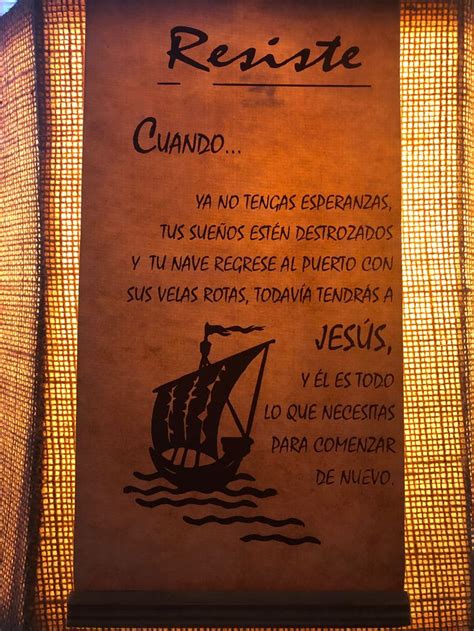 Resiste
CUANDO...
YA NO TENGAS ESPERANZAS,
TUS SUEÑOS ESTÉN DESTROZADOS
Y TU NAVE REGRESE AL PUERTO CON
SUS VELAS ROTAS, TODAVÍA TENDRÁS A
JESÚS,
Y ÉL ES TODO
LO QUE NECESITAS
PARA COMENZAR
DE NUEVO.